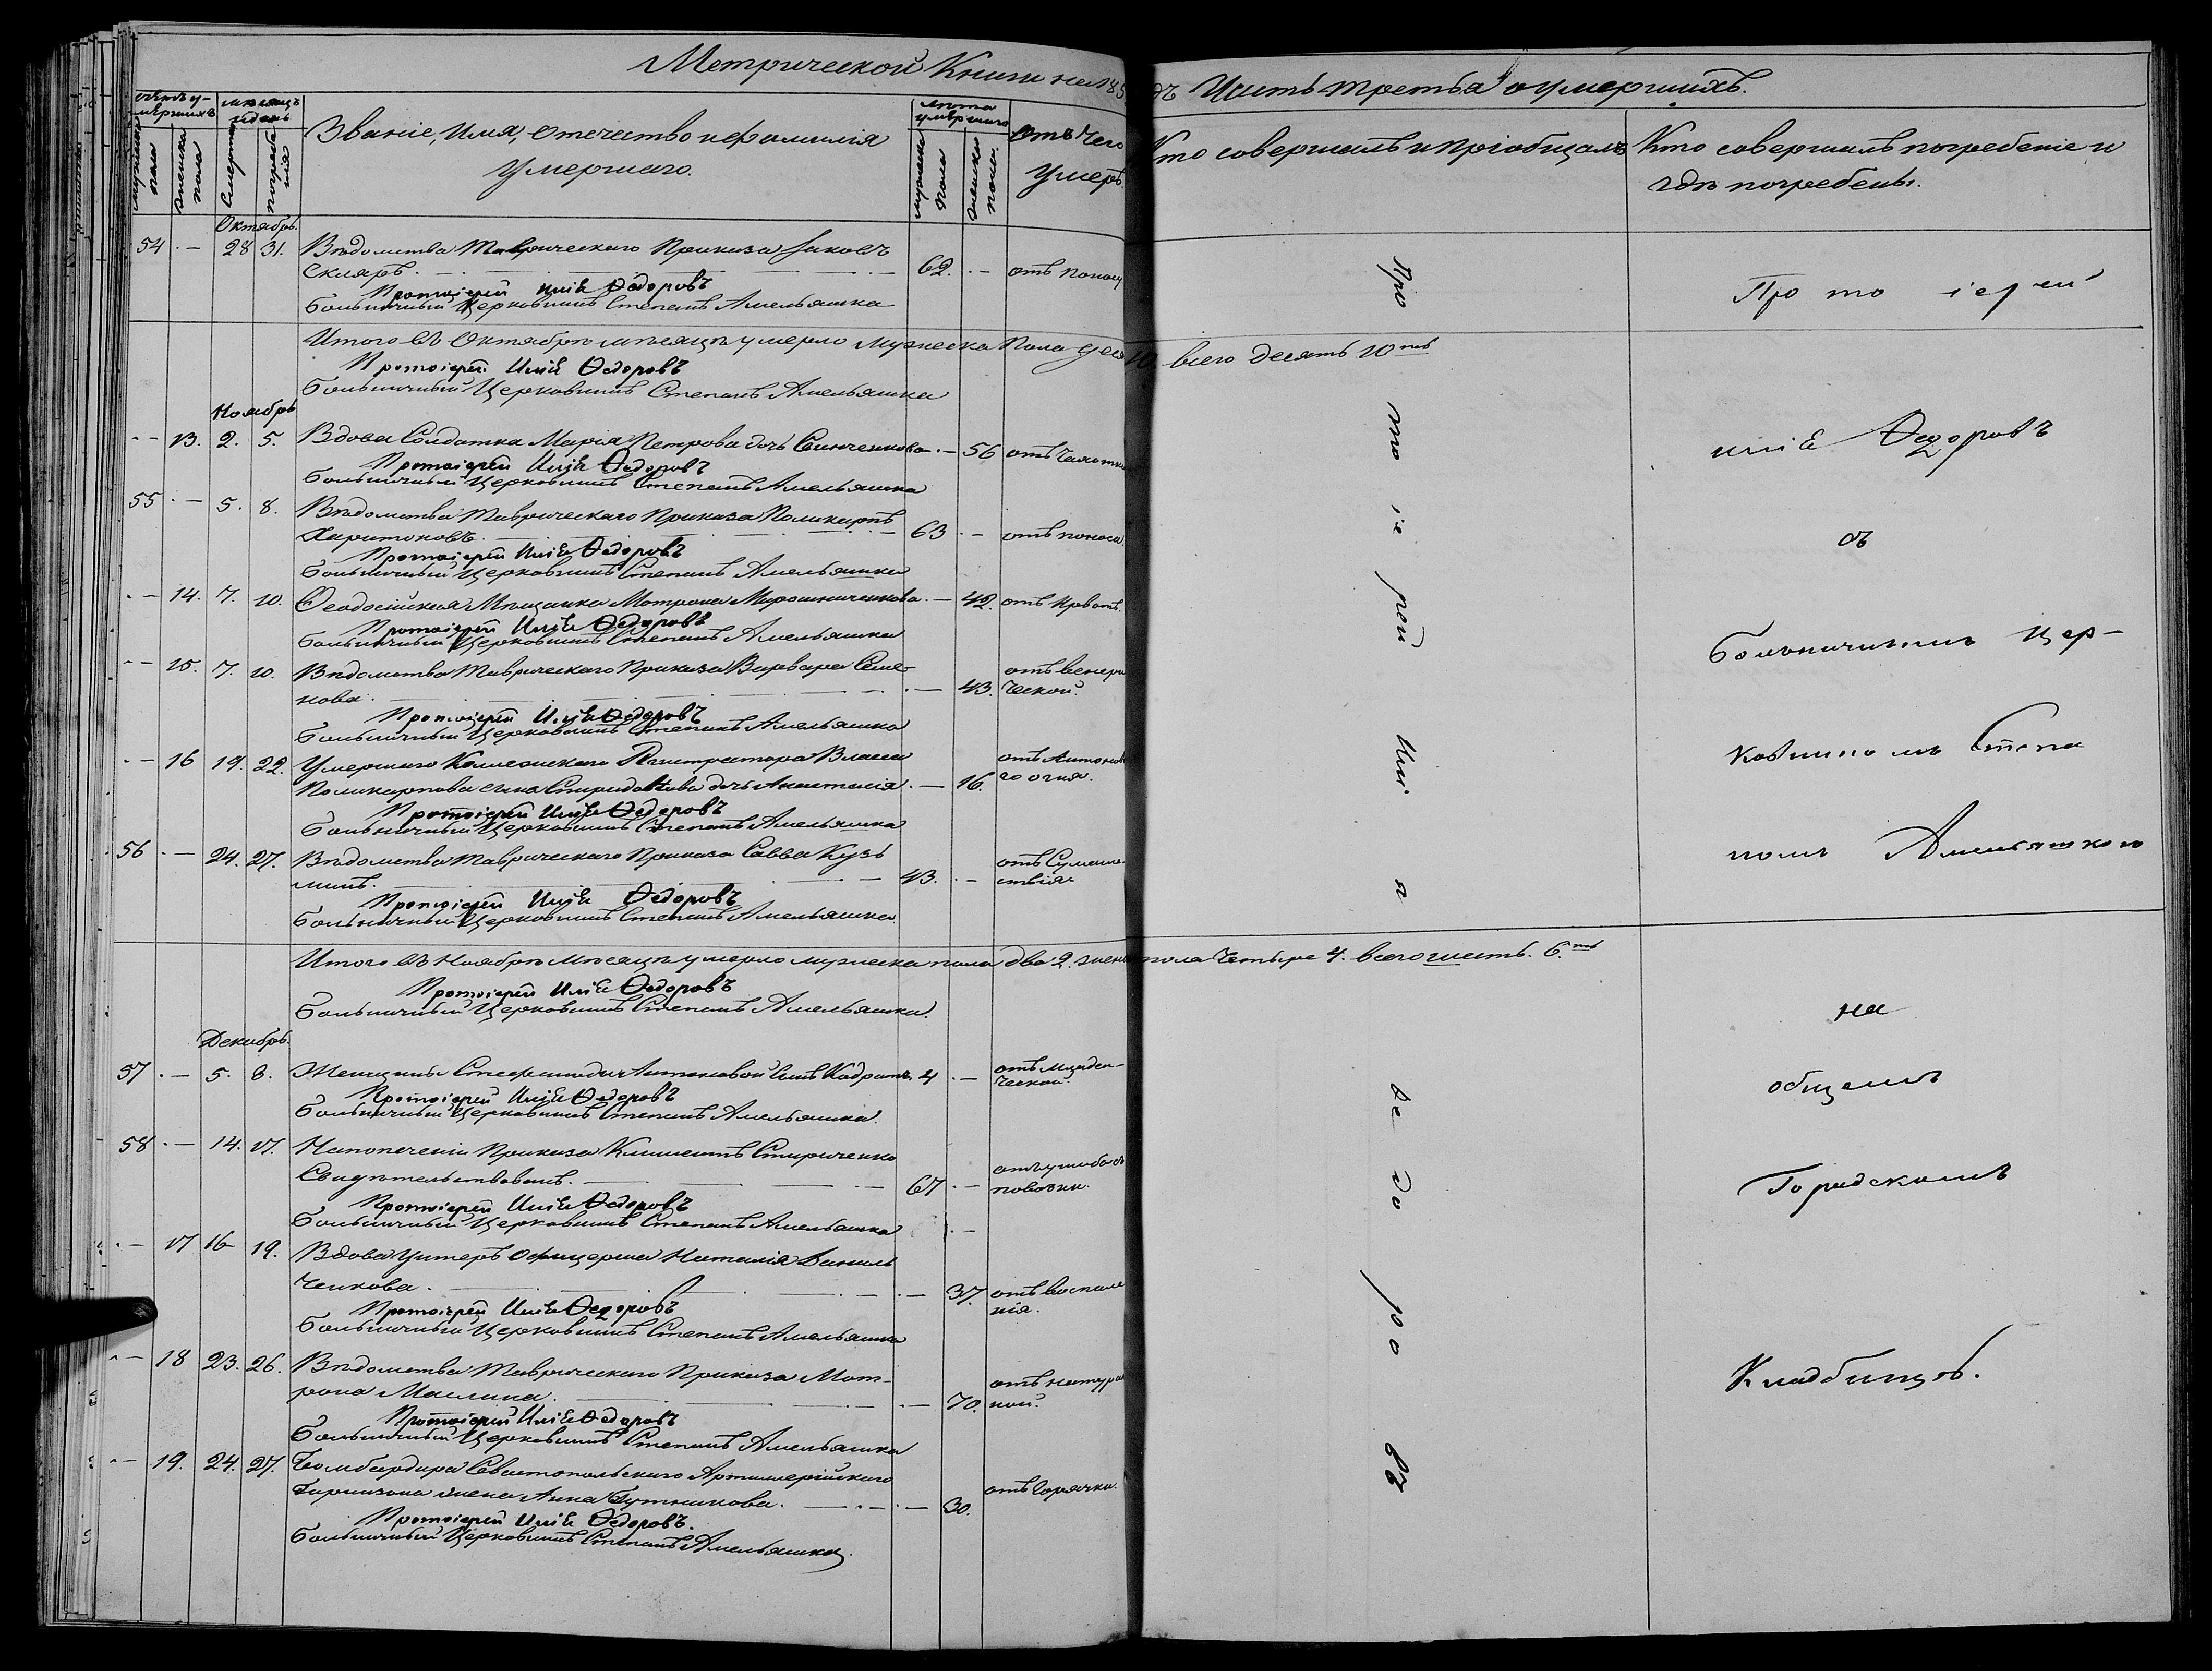 Метрической Книги на 185 дъ Часть третья о умершихъ.
Счетъ у-
мершихъ
мѣсяцъ
и день
Званіе, Имя, отечество и фамилія
умершаго.
лѣта
умершаго
Отъ чего
умеръ.
Кто совершалъ и пріобщалъ
Кто совершалъ погребеніе и
гдѣ погребены.
мужеска
пола
женска
пола
Смерти
погребе
нія
мужеска
пола
женска
пола.
Октябрь.
54 . — 28 31. Вѣдомства Таврическаго Приказа Іаковъ
Скляръ. — 62. . — отъ поноса
Протоіерей Иліа Ѳедоровъ
больничный Церковникъ Степанъ Амельяшка
Итого въ Октябрѣ мѣсяцѣ умерло мужеска пола деся 10. всего десять 10ть
Протоіерей Иліа Ѳедоровъ
больничный Церковникъ Степанъ Амельяшка
Ноябрь
. — 13. 2. 5. Вдова Солдатка Марія Петрова дочь . — 56 отъ чахотки
Протоіерей Иліа Ѳедоровъ
больничный Церковникъ Степанъ Амельяшка
55 . — 5. 8. Вѣдомства Таврическаго Приказа Поликарпъ
Харитоновъ. — 63 . — отъ поноса
Протоіерей Иліа Ѳедоровъ
больничный Церковникъ Степанъ Амельяшка
. — 14. 7. 10. Ѳеодосійская Мѣщанка Матрона Мирошниченкова. — 42. отъ
Протоіерей Иліа Ѳедоровъ
больничный Церковникъ Степанъ Амельяшка
. — 15. 7. 10. Вѣдомства Таврическаго Приказа Варвара Семе-
нова. — 43. отъ венери
ческой.
Протоіерей Иліа Ѳедоровъ
больничный Церковникъ Степанъ Амельяшка
. — 16 19. 22. Умершаго Коллежскаго Регистратора Власа
Поликарпова сына Спиридонова дочь Анастасія. — 16. отъ Антонов
го огня.
Протоіерей Иліа Ѳедоровъ
больничный Церковникъ Степанъ Амельяшка
56 . — 24. 27. Вѣдомства Таврическаго Приказа Савва Кузь
минъ. — 43. . — отъ Сумаше-
ствія
Протоіерей Иліа Ѳедоровъ
больничный Церковникъ Степанъ Амельяшка
Итого въ Ноябрѣ мѣсяцѣ умерло мужеска пола два 2. женск пола четыре 4. всего шесть. 6.ть
Протоіерей Иліа Ѳедоровъ
больничный Церковникъ Степанъ Амельяшка.
Декабрь.
57 . — 5. 8. Женщины Антоновой сынъ 4 . — отъ младен-
ческой.
Протоіерей Иліа Ѳедоровъ
больничный Церковникъ Степанъ Амельяшка.
58 . — 14. 17. Приказа Климентъ
Свидѣтельствованъ. — 67 . — отъ ушиба съ
повозки.
Протоіерей Иліа Ѳедоровъ
больничный Церковникъ Степанъ Амельяшка
. — 17 16 19. Вдова Унтеръ офицерша Наталія Даниль
ченкова. — 37. отъ воспале
нія.
Протоіерей Иліа Ѳедоровъ
больничный Церковникъ Степанъ Амельяшка
. — 18 23. 26. Вѣдомства Таврическаго Приказа Мат-
рона Маслина. — 70. отъ натура
ной.
Протоіерей Иліа Ѳедоровъ
больничный Церковникъ Степанъ Амельяшка
. — 19. 24. 27. Бомбардира Севастопольскаго Артиллерійскаго
Гарнизона жена Анна Гутникова. — 30. отъ горячки.
Протоіерей Иліа Ѳедоровъ.
больничный Церковникъ Степанъ Амельяшка.
Про то іе рей Илі а Ѳе до ро въ
Про то іерей
иліа Ѳедоровъ
съ
больничнымъ Цер-
ковникомъ Степа
номъ Амельяшкою
на
общемъ
Городскомъ
Кладбищѣ.